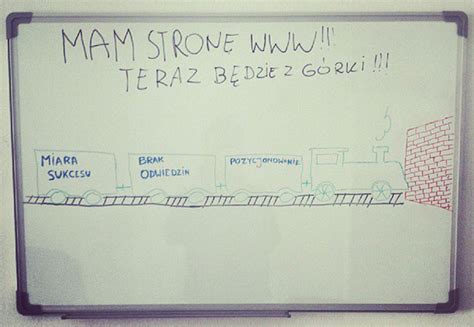 MAM STRONE WWW!!!
TERAZ BĘDZIE Z GÓRKI!!!
MIARA
SUKCESU
BRAK
ODWIEDZIN
POZYCJONOWANIE